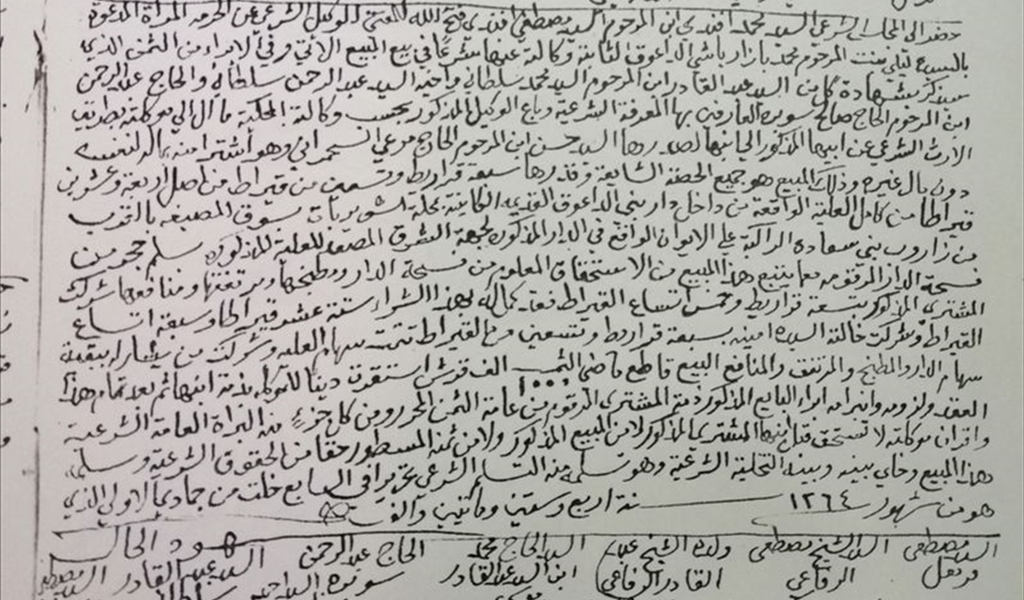 حضر الى المجلس الشرعي السيد محمد افندي ابن المرحوم السيد مصطفى افندي فتح الله المفتي الوكيل الشرعي عن الحرمه المرأة المدعوة
بالسيدة ليلى بنت المرحوم محمد بازارباشي الداعوق الثابتة وكالته عنها شرعا في بيع المبيع الآتي وفي الابراء من الثمن الذي
سيذكر بشهادة كل من السيد عبد القادر ابن المرحوم السيد محمد سلطاني واخيه السيد عبد الرحمن سلطاني والحاج عبد الرحمن
ابن المرحوم الحاج صالح سوبره العارفين بها المعرفة الشرعية وباع الوكيل المذكور بحسب وكالته المحكية ما آل الى موكلته بطريق
الارث الشرعي عن ابيها المذكور الجاني لصدرها السيد حسن ابن المرحوم الحاج مرعي وهو اشترا منه بماله لنفسه
دون مال غيره وذلك المبيع هو جميع الحصة الشايعة وقدرها سبعة قراريط وتسعين من قيراط من اصل اربعة وعشرين
قيراطا من كامل العلية الواقعة من داخل دار بني الداعوق القديمة الكائنة بمحلة شويربات سوق المصبغه بالقرب
من زاروب بني سعادة الراكبة على الايوان الواقع في الدار المذكوره لجهة الشرق للعلية المذكوره سلم حجر من
فسحة الدار المرقومه معما يتبع هذا المبيع من الاستحقاق المعلوم من فسحة الدار ومطبخها ومرتفقها ومنافعها شركت
المشتري المذكور بتسعة قراريط وخمس اتساع القيراط فقد كمل له بهذا الشراء ستة عشر قيراطا وسبعة اتساع
القيراط وشركت خالته السيدة امينه بسبعة قراريط وتسعين من القيراط تتمت سهام العلية وشركت من يشارك ببقية
سهام الدار والمطبخ والمرتفق والمنافع البيع قاطع ماضي الثمن ١٠٠٠ الف قرش استقرت دينا للموكله بذمة ثم بعد تمام هذا
العقد ولزومه وانبرامه ابراء البايع المذكور ذمة المشتري المرقوم من عامة الثمن المحرر ومن كل جزء منه البراة العامة الشرعية
واقر ان موكلته لا تستحق قبل المشتري المذكور لا من المبيع المذكور ولا من ثمنه المسطور حقا من الحقوق الشرعية وسلمه
هذا المبيع وخلى بينه وبينه التخلية الشرعية وهو تسلمه منه التسلم الشرعي تحريرا في السابع خلت من جمادى الاولى الذي
هو من شهور ١٢٦٤ سنة اربع وستين ومائتين والف
شهود الحال
السيد مصطفى قرنفل السيد الشيخ مصطفى الرفاعي ولده الشيخ عبد القادر الرفاعي السيد الحاج محمد ابن السيد عبد القادر الحاج عبد الرحمن سوبره السيد عبد القادر السيد مصطفى